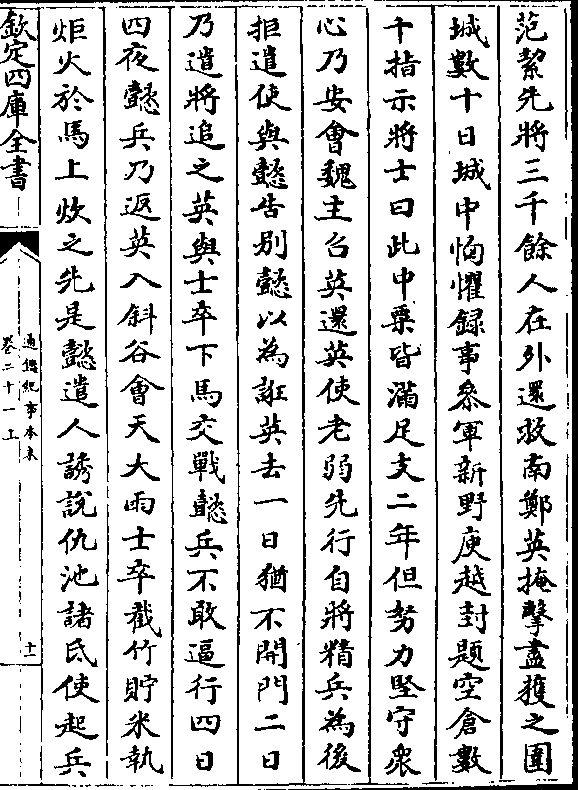 范絜先將三千餘人在外還救南鄭英掩擊盡獲之圍
城數十日城中恟懼録事參軍新野庾越封題空倉數
十指示將士曰此中粟皆滿足支二年但努力堅守衆
心乃安會魏主召英還英使老弱先行自將精兵為後
拒遣使與懿告别懿以為詐英去一日猶不開門二日
乃遣將追之英與士卒下馬交戰懿兵不敢逼行四日
四夜懿兵乃返英入斜谷會天大雨士卒截竹貯米執
炬火於馬上炊之先是懿遣人誘說仇池諸氐使起兵
欽定四庫全書
通鑑紀事本末
卷二十一上
十一